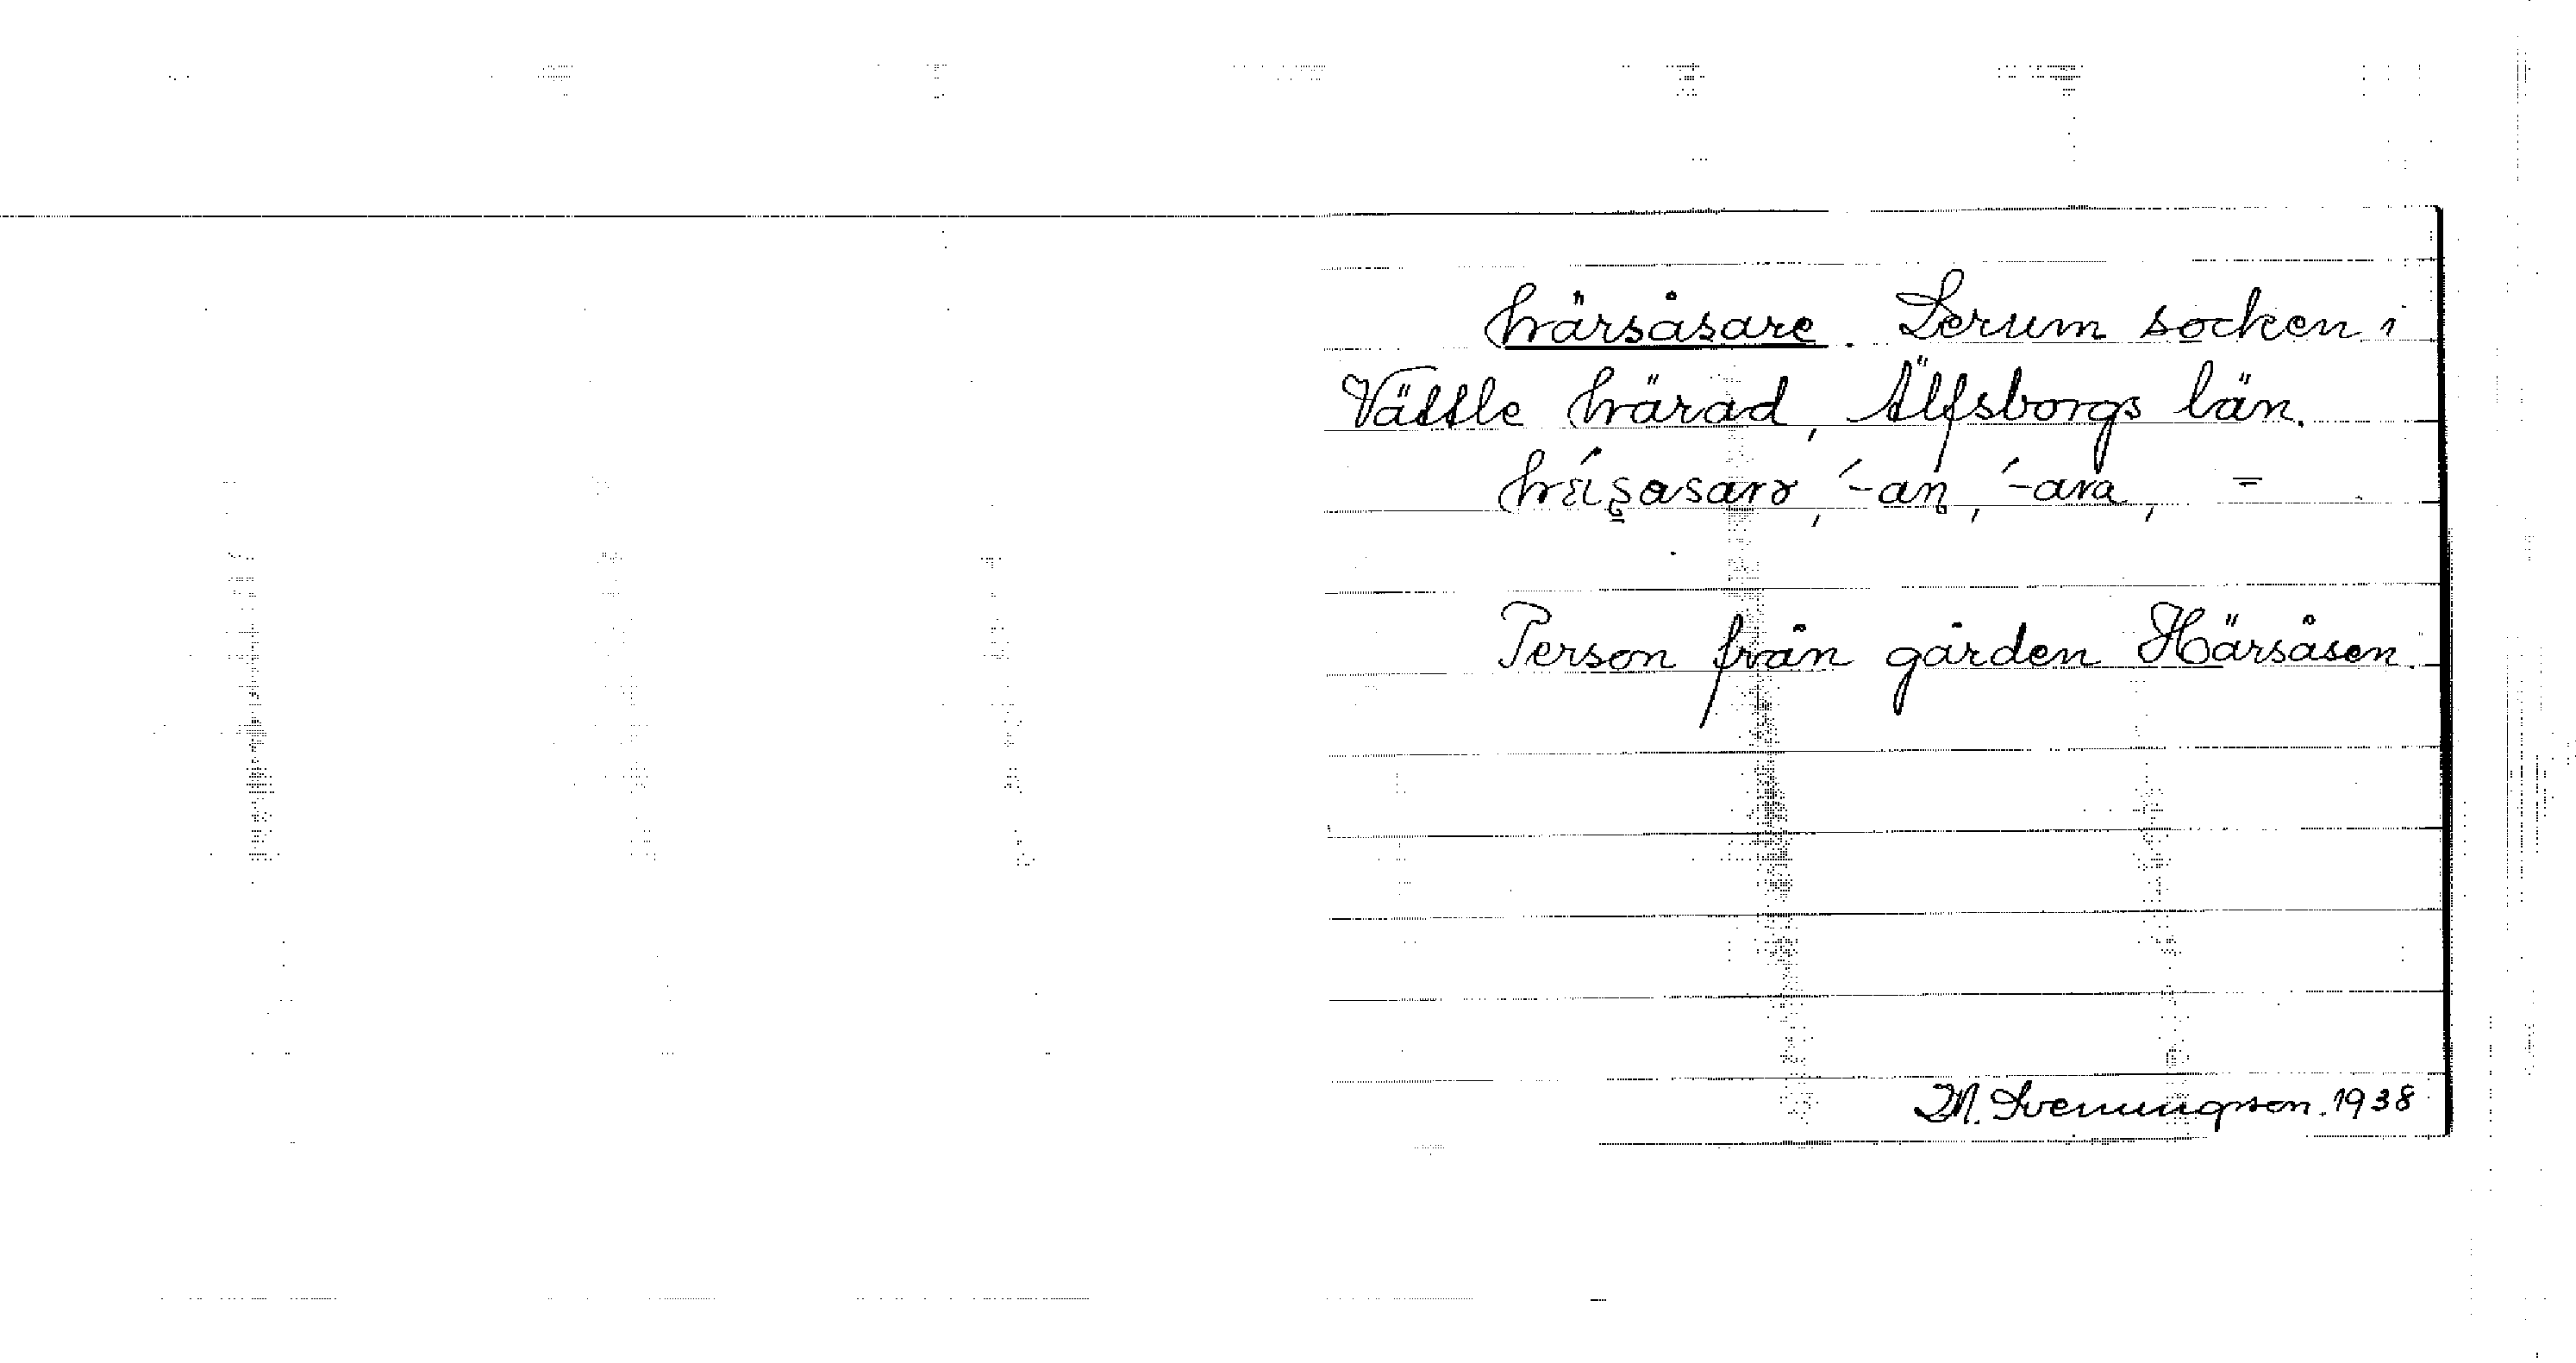 härsåsare. Lerum socken i
Vättle härad, Älfsborgs län.
hǽʂasarə, ´-aɳ, ´-ara, =
Person från gården Härsåsen.
M. Svenungson. 1938